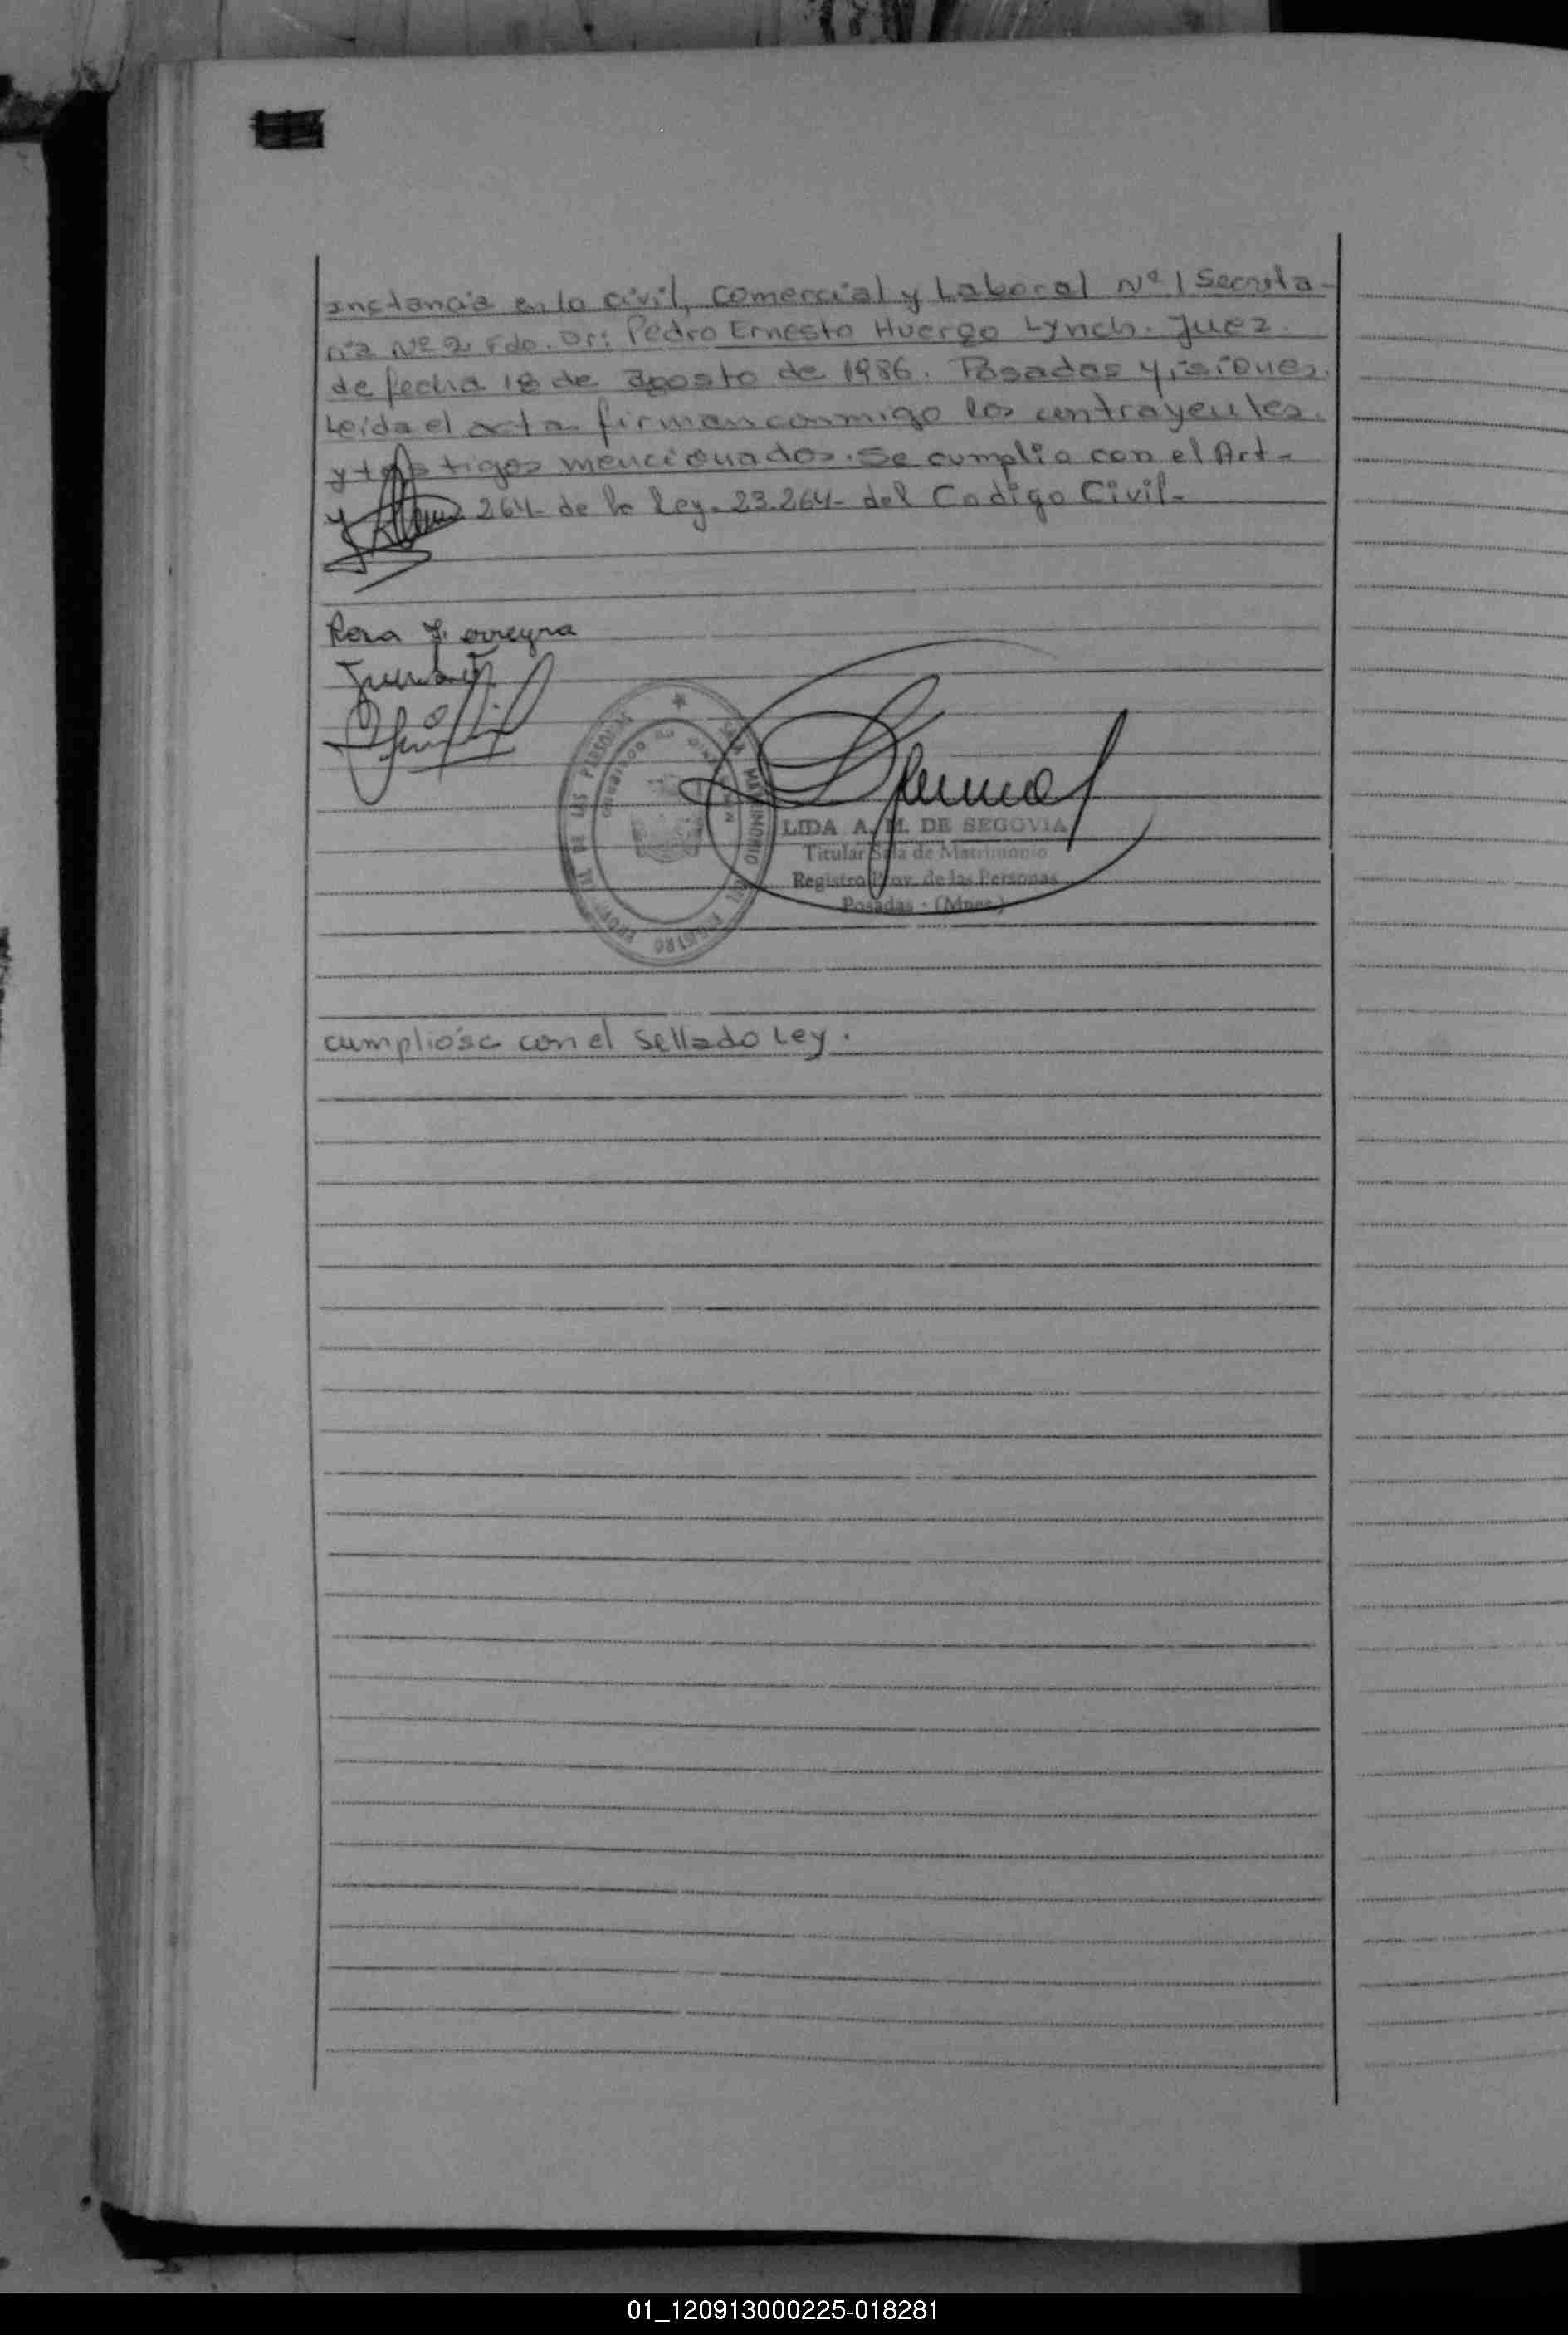 Instancia en lo civil, Comercial y Laboral Nº 1 Secreta-
ría Nº 2. Fdo. Dr: Pedro Ernesto Huergo Lynch. Juez.
de fecha 18 de agosto de 1986. Posadas Misiones.
Leída el acta firman conmigo los contrayentes.
y testigos mencionados. Se cumplio con el Art-
264- de la Ley. 23.264- del Codigo Civil-
Rosa Ferreyra
LIDA A. M. DE SEGOVIA
Titular Sala de Matrimonio
Registro Prov. de las Personas
Posadas - (Mnes.)
REGISTRO PROVINCIAL DE LAS PERSONAS
MATRIMONIO
cumpliósc con el Sellado Ley.
01_120913000225-018281